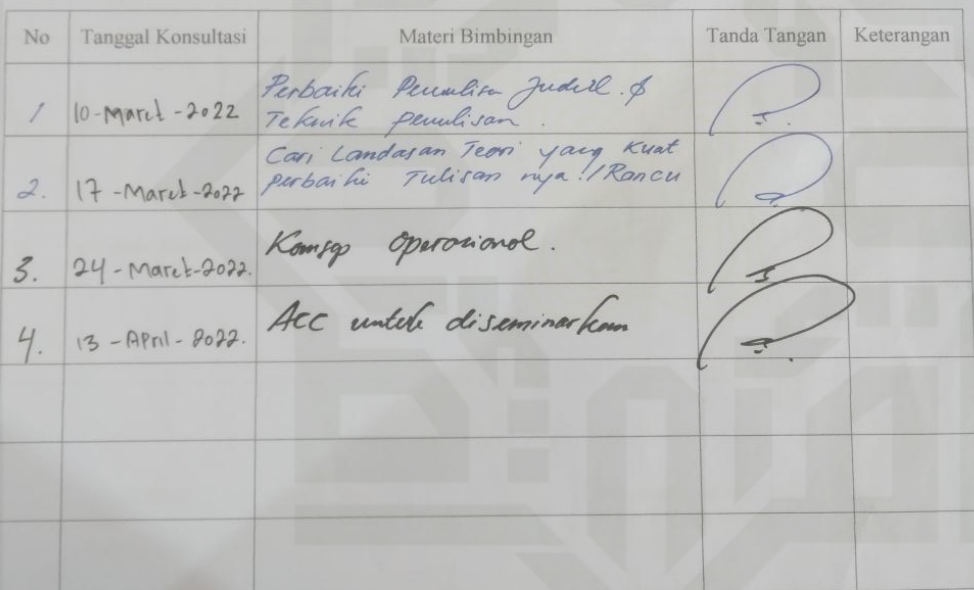 No Tanggal Konsultasi Materi Bimbingan Tanda Tangan Keterangan
1 10-Maret-2022 Perbaiki Penulisan Judul. &
Teknik penulisan.
2. 17-Maret-2022 Cari Landasan Teori yang Kuat
perbaiki Tulisan nya!/Rancu
3. 24-Maret-2022. Konsep Operasional.
4. 13-April-2022. ACC untuk diseminarkan